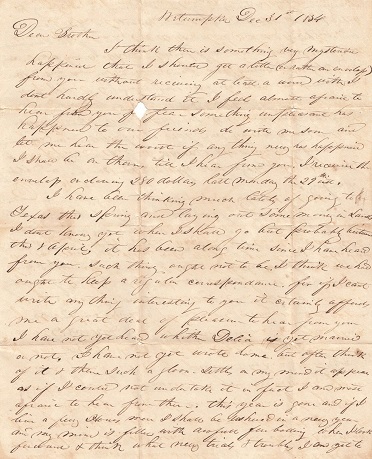 Wetumpka Dec 31st 1834
Dear Brother
I think there is something very mysterious
happened that I should get a letter (or rather an envelop)
from you without receiving at least a word with it
dont hardly understand it I feel almost afraid to
hear from you for fear something unpleasant has
happened to our friends do write me soon and
let me hear the worst if any thing new has happened
I shall be on thorns till I hear from you. I received the
envelop enclosing 250 dollars last Monday the 29th inst.
I have been thinking much lately of going to
Texas this Spring and laying out some money in Lands
I dont know yet when I shall go but probably between
this & April, it has been a long time since I have heard
from you. such things ought not to be I think we
ought to keep a regular correspondence. for if I cant
write any thing interesting to you it certainly affords
me a great deal of pleasure to hear from you
I have not yet heard whether Delia is yet married
or not, I have not yet wrote home, but often think
of it & then such a gloom settles on my mind it appears
as if I could not undertake it in fact I am most
afraid to hear from them. this year is gone and if I
live a few Hours more I shall be ushered in a new year
and my mind is filled with awful forbodings when I look
forward & think what new trials & troubles I may get to